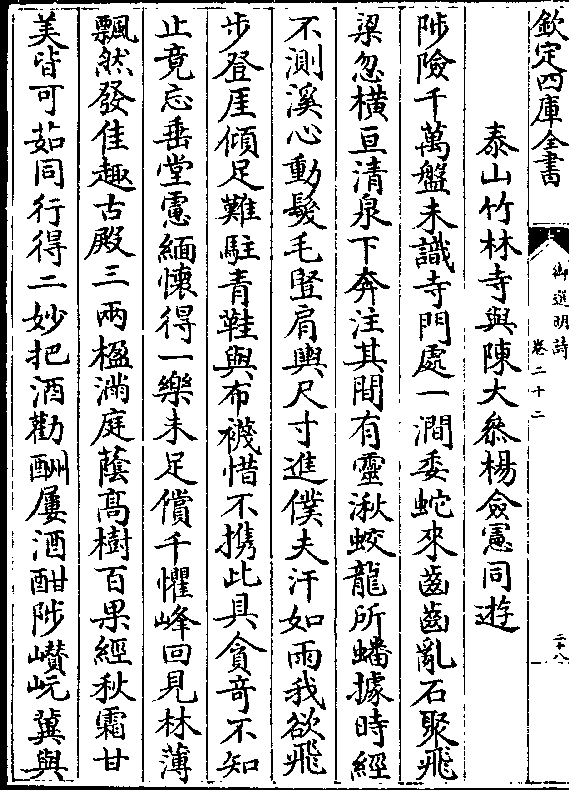 欽定四庫全書
御選明詩
卷二十二
二十八
泰山竹林寺與陳大叅楊僉憲同遊
陟險千萬盤未識寺門處一澗委蛇來齒齒亂石聚飛
梁忽橫亘清泉下奔注其間有靈湫蛟龍所蟠據時經
不測溪心動髮毛豎肩輿尺寸進僕夫汗如雨我欲飛
步登厓傾足難駐青鞋與布襪惜不携此具貪奇不知
止竟忘垂堂慮緬懷得一樂未足償千懼峰回見林薄
飄然發佳趣古殿三兩楹滿庭蔭高樹百果經秋霜甘
美皆可茹同行得二妙把酒勸酬屢酒酣陟巑岏冀與